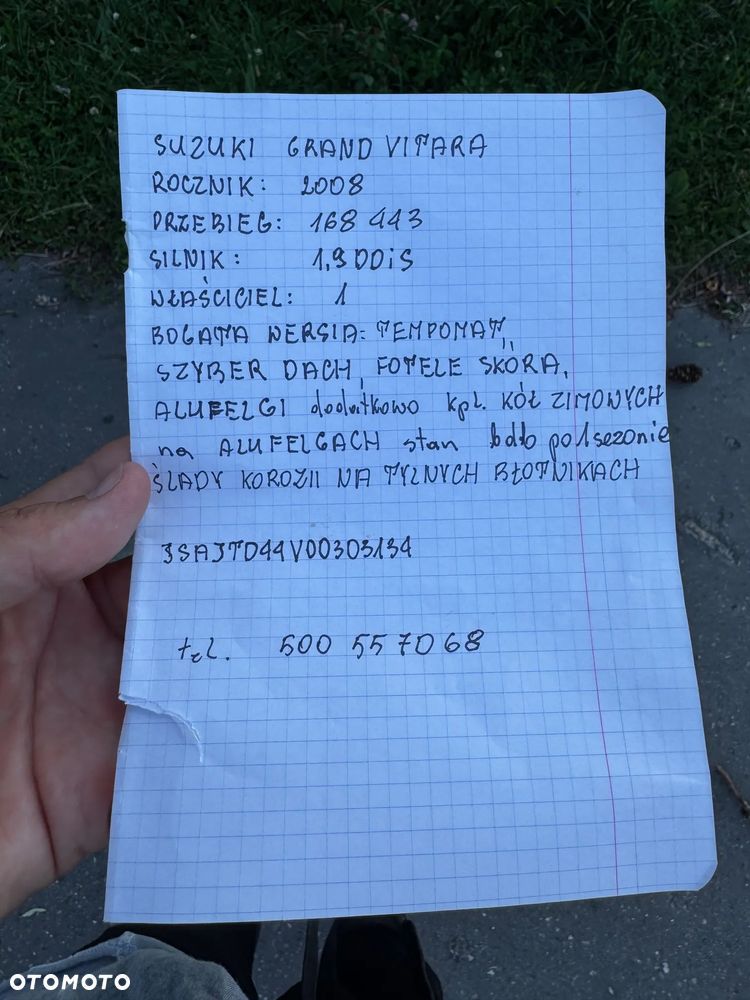 SUZUKI GRAND VITARA
ROCZNIK: 2008
PRZEBIEG: 168 443
SILNIK: 1,9 DDiS
WŁAŚCICIEL: 1
BOGATA WERSIA: TEMPOMAT,
SZYBER DACH, FOTELE SKÓRA,
ALUFELGI dodatkowo kpl. KÓŁ ZIMOWYCH
na ALUFELGACH stan bdb po 1 sezonie
ŚLADY KOROZII NA TYLNYCH BŁOTNIKACH
JSAJTD44V00303134
tel. 500 557068
OTOMOTO